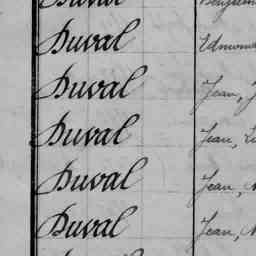 Duval
Duval
Duval Jean,
Duval Jean,
Duval Jean,
Duval Jean,